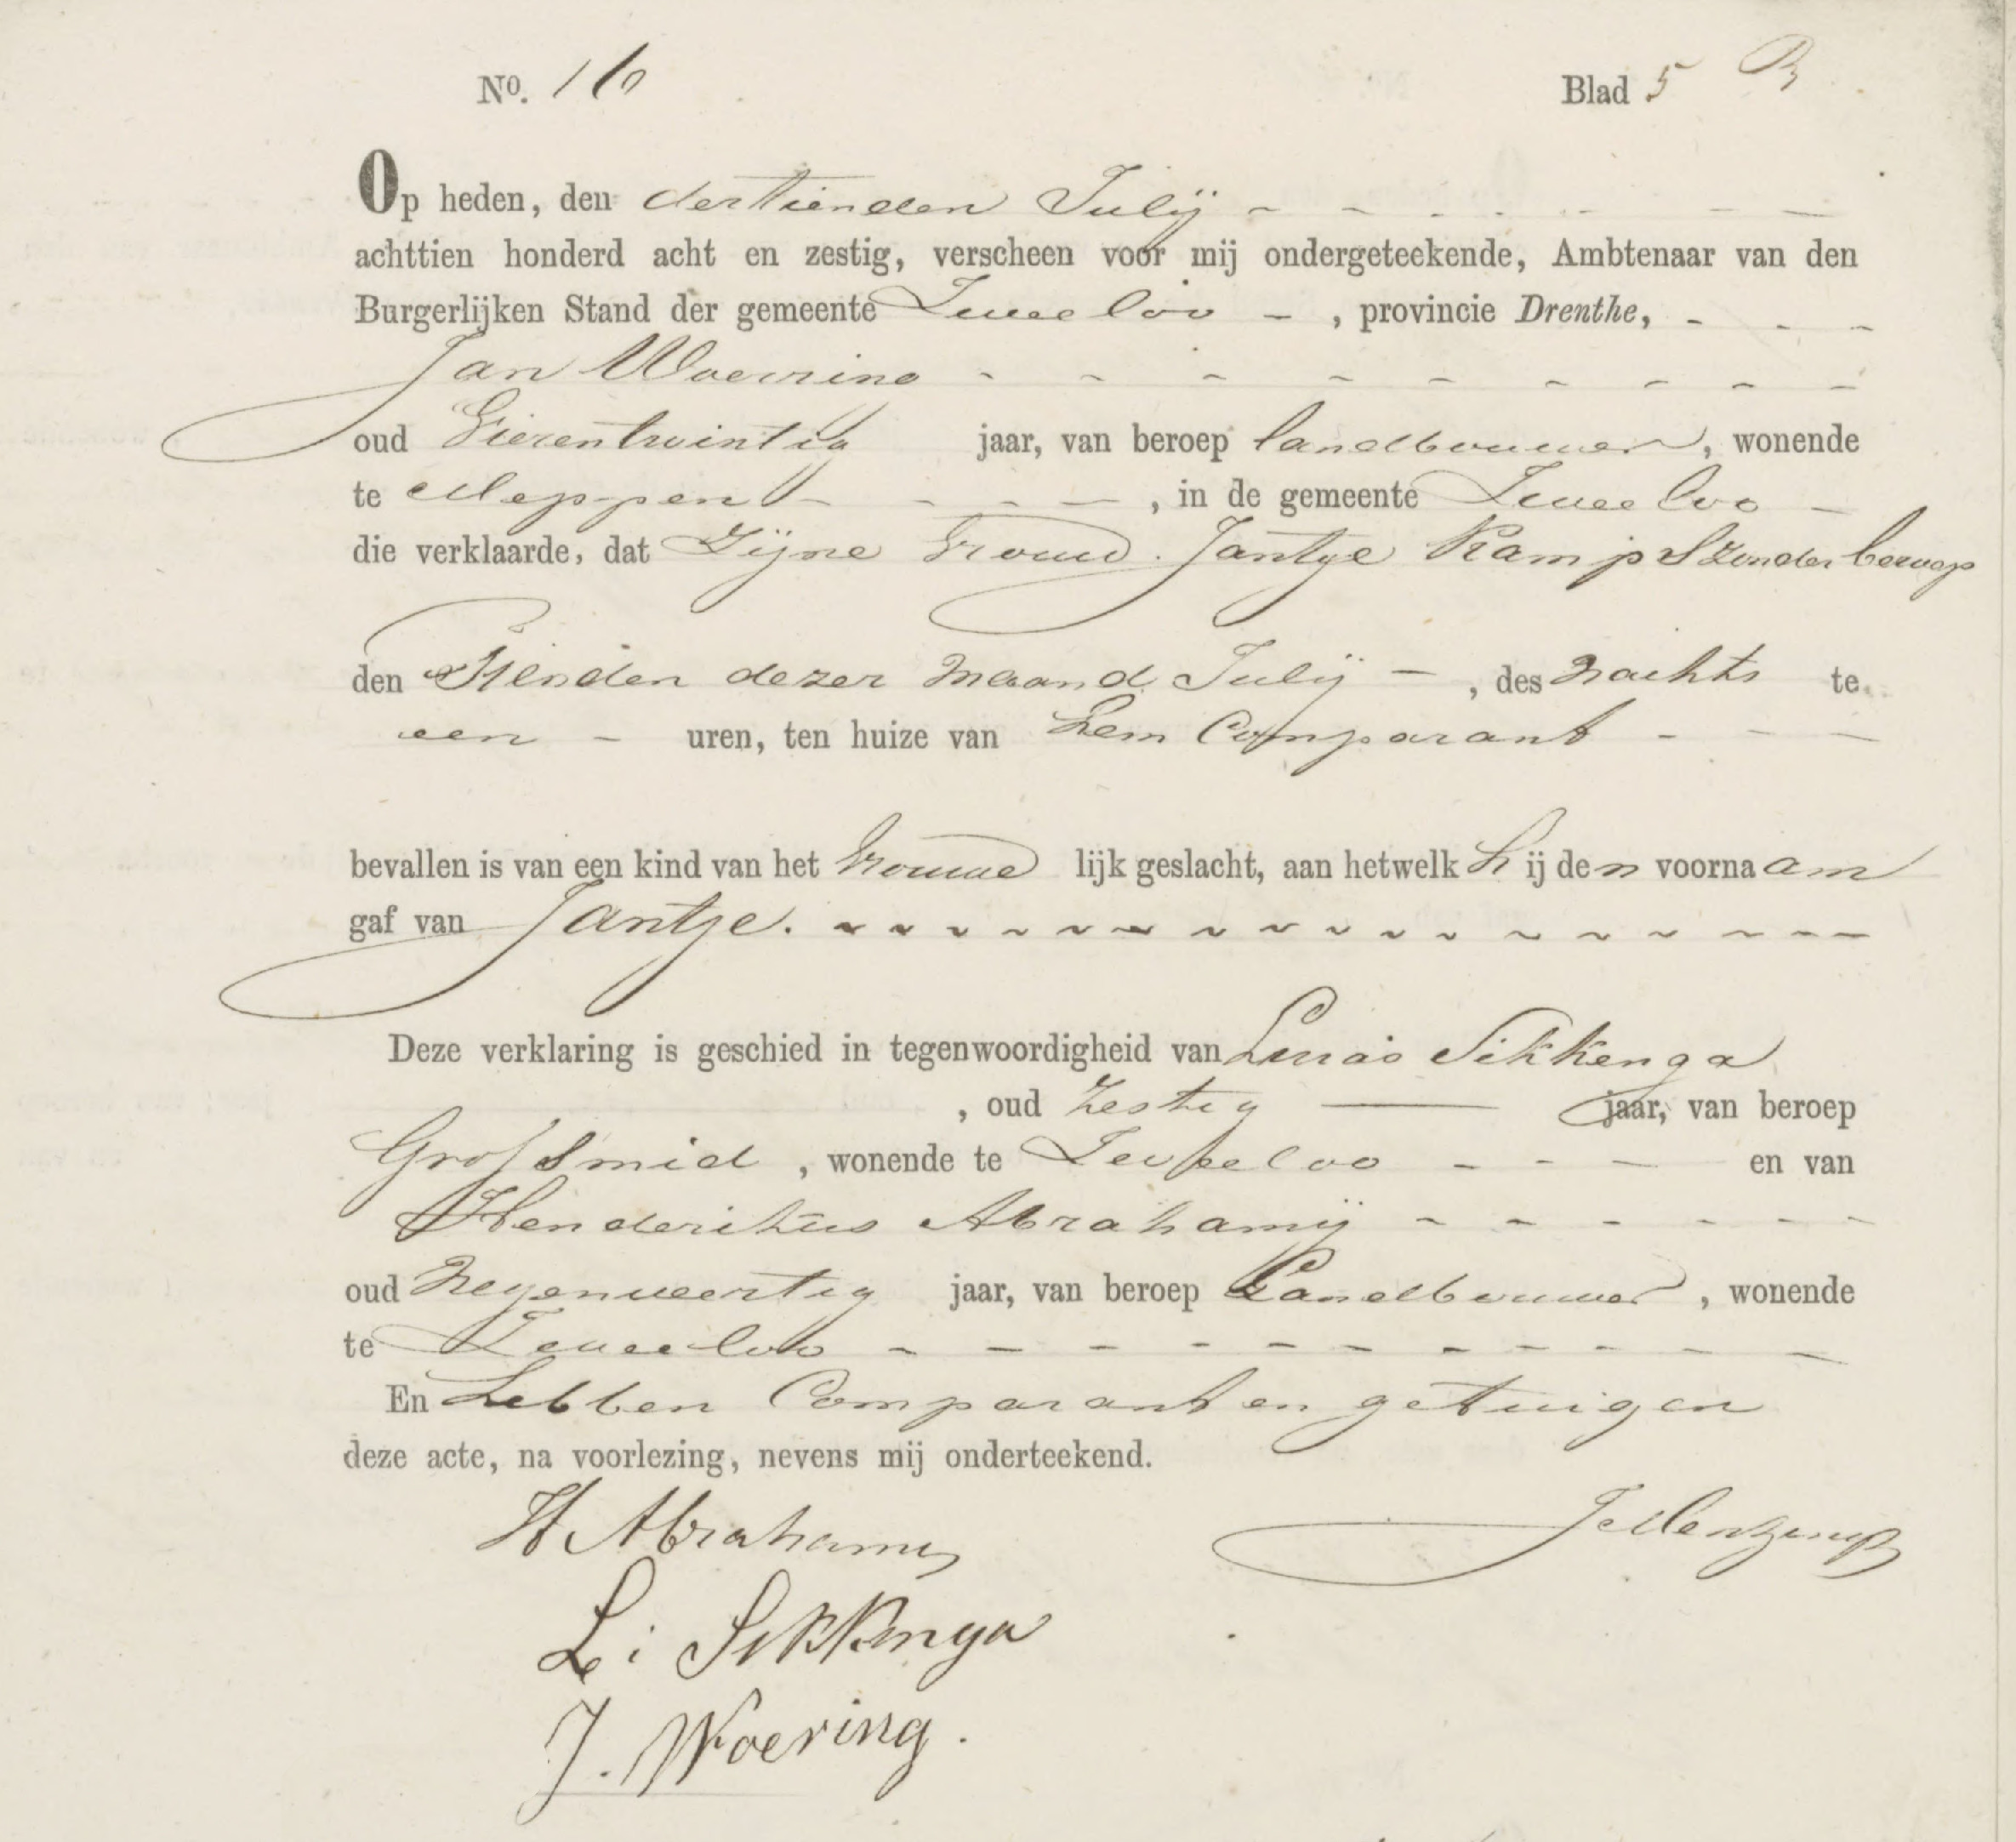 No. 16 Blad 5 B
Op heden, den dertienden Julij
achttien honderd acht en zestig, verscheen voor mij ondergeteekende, Ambtenaar van den
Burgerlijken Stand der gemeente Zweeloo, provincie Drenthe,
Jan Woering
oud Vierentwintig jaar, van beroep landbouwer, wonende
te Meppen, in de gemeente Zweeloo
die verklaarde, dat Zijne Vrouw Jantje Kamps zonder beroep
den Tienden dezer maand Julij, des nachts te
een uren, ten huize van hem Comparant
bevallen is van een kind van het Vrouwe lijk geslacht, aan hetwelk h ij de n voorna am
gaf van Jantje.
Deze verklaring is geschied in tegenwoordigheid van Lucas Sikkenga
, oud Zestig jaar, van beroep
Grofsmid, wonende te Zweeloo en van
Henderikus Abrahamij
oud Negenveertig jaar, van beroep Landbouwer, wonende
te Zweeloo
En hebben Comparant en getuigen
deze acte, na voorlezing, nevens mij onderteekend.
H Abrahamij
L: Sikkenga
J. Woering.